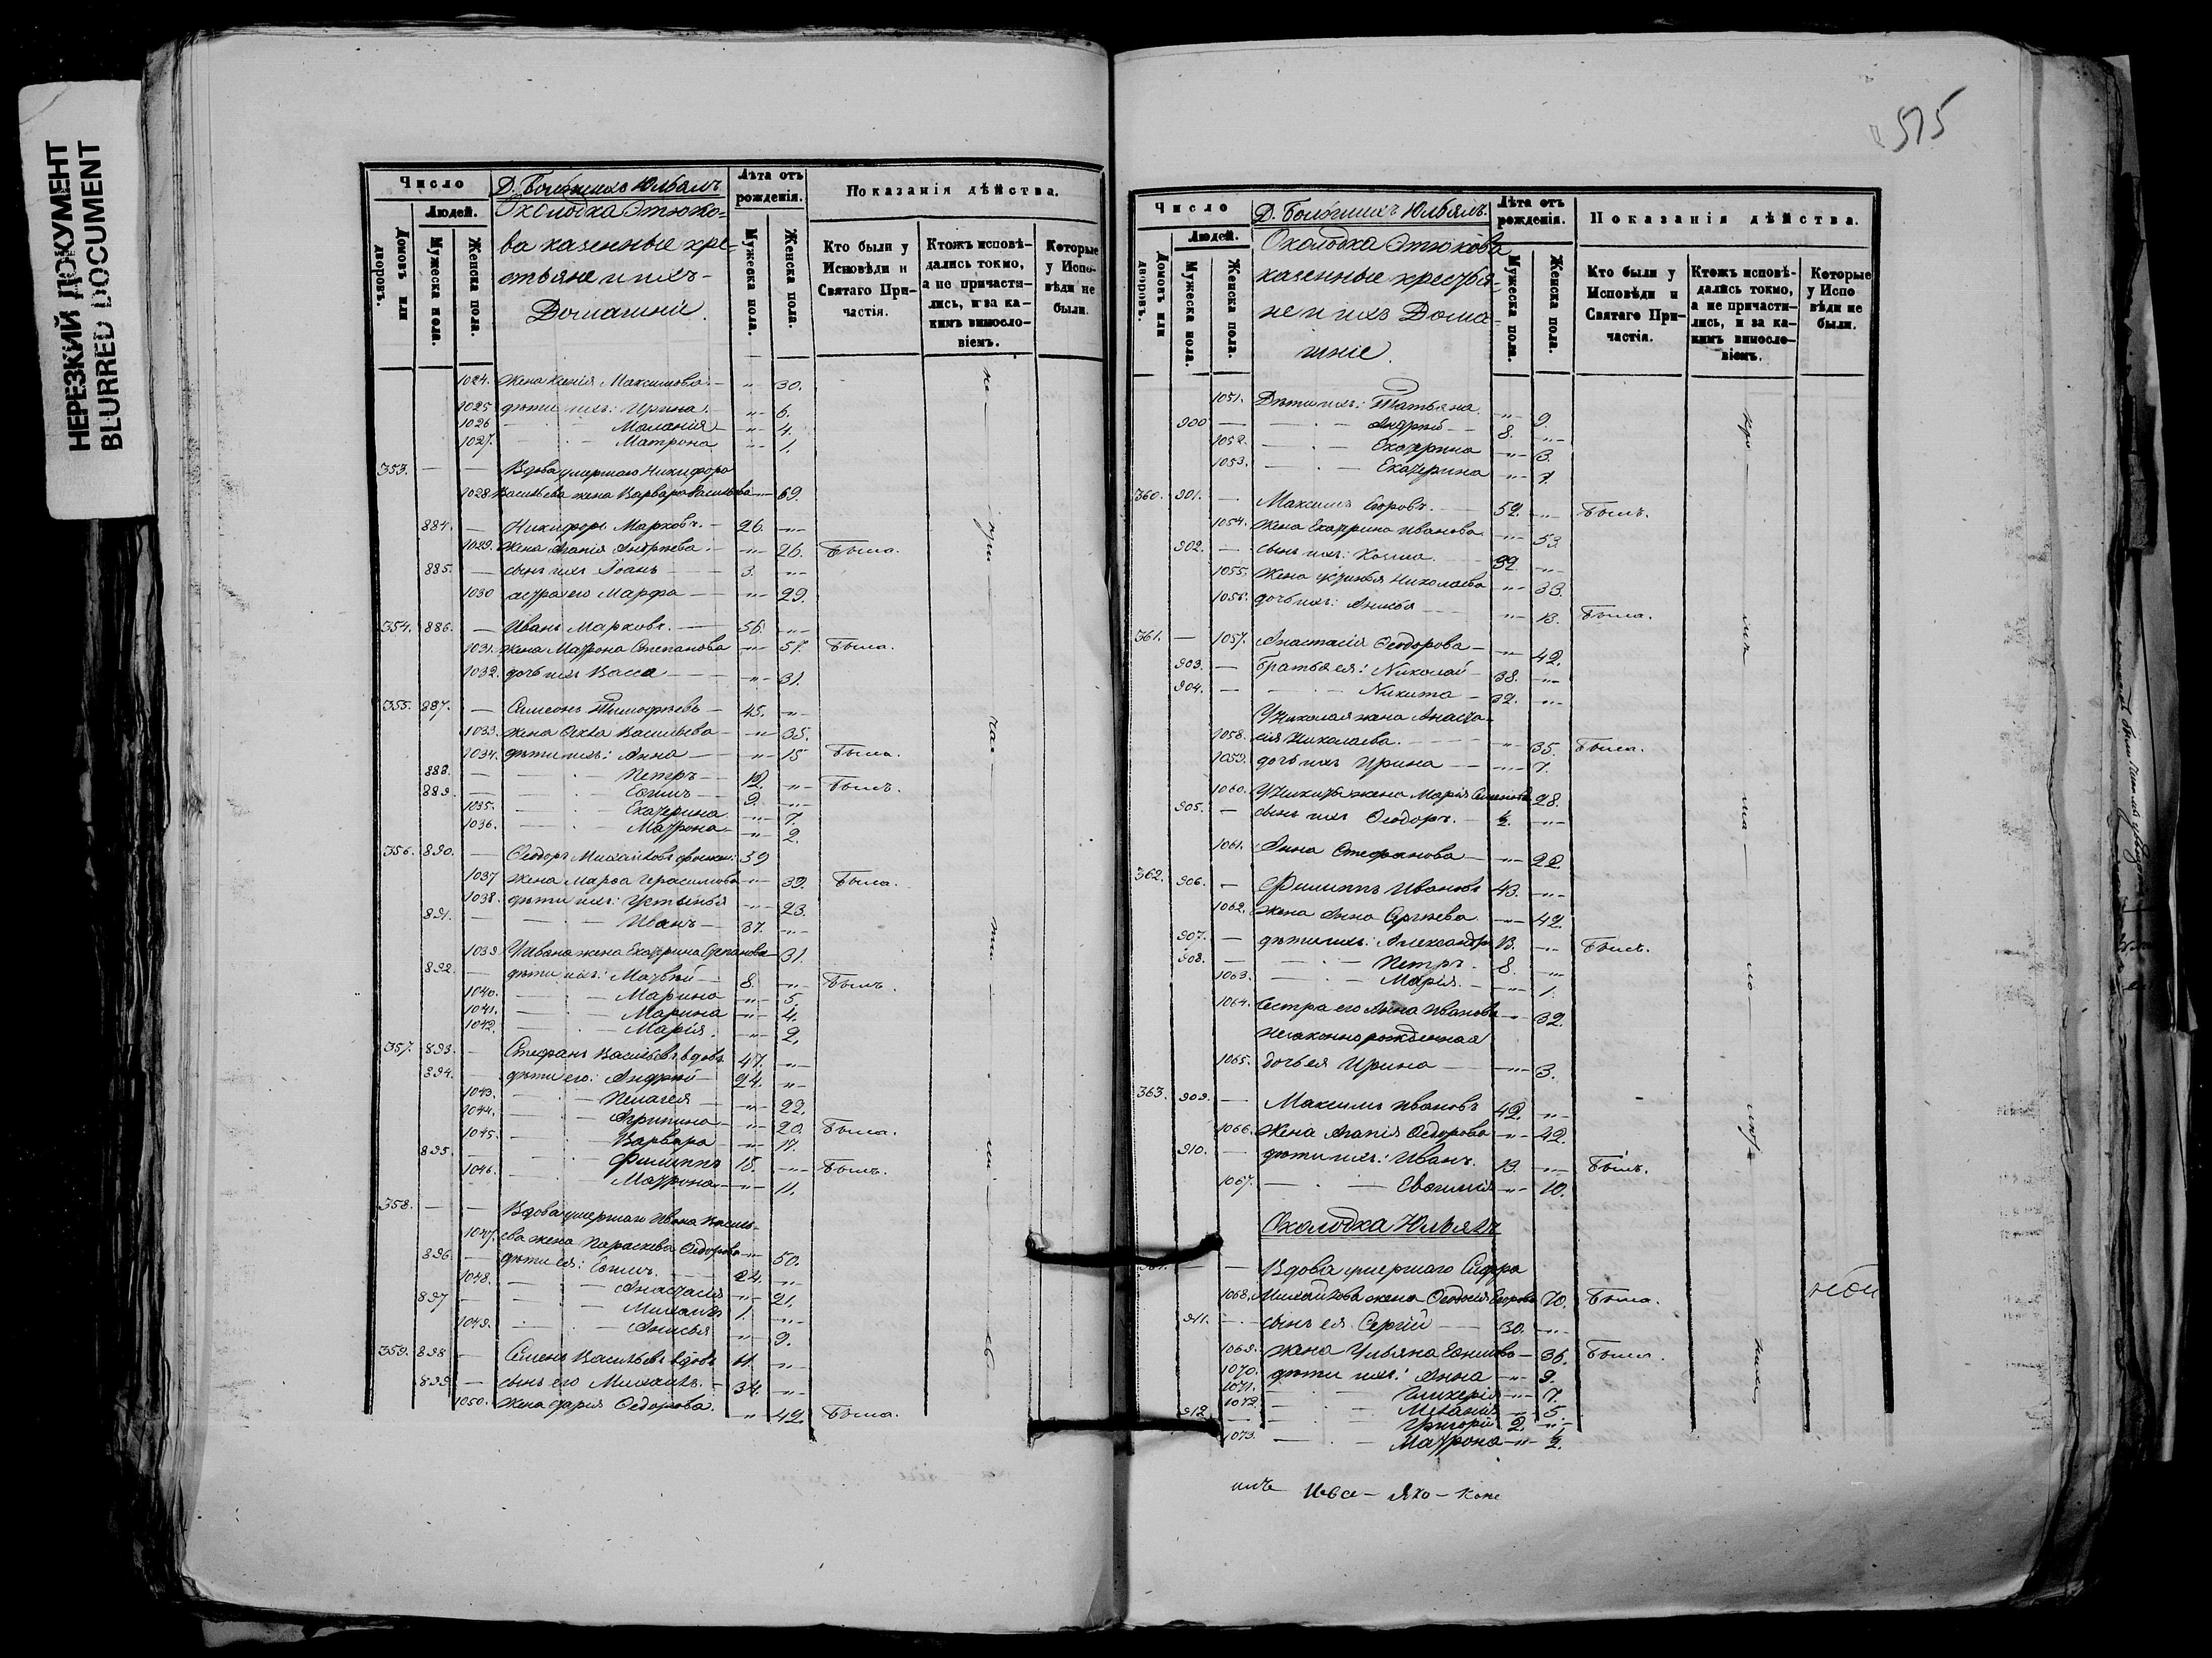 НЕРЕЗКИЙ ДОКУМЕНТ
BLURRED DOCUMENT
Число
Людей.
Домовъ или дворовъ.
Мужеска пола.
Женска пола.
Лѣта отъ рожденія.
Мужеска пола.
Женска пола.
Показанія дѣйства.
Кто были у Исповѣди и Святаго Причастія.
Ктожъ исповѣдались токмо, а не причастились, и за какимъ винословіемъ.
Которые у Исповѣди не были.
Околодка Этюко-
ва казенные кре-
стьяне и ихъ
Домашніе.
1024. жена Ксенія Максимова — 30.
1025 дѣти ихъ: Ирина — 6.
1026 — Маланія — 4.
1027. — Матрона — 1.
353. — — Вдова умершаго Никифора
1028 Васильева жена Варвара Васильева — 69.
884. — Никифоръ Марковъ. — 26.
1029. жена Агапія Андреева. — 26. Была.
885. — сынъ ихъ Іоанъ 3.
1030 сестра его Марфа — 29.
354. 886. — Иванъ Марковъ. — 56.
1031. жена Матрона Степанова — 57. Была.
1032. дочь ихъ Васса — 31.
355. 887. — Симеонъ Тимофѣевъ — 45.
1033. жена Ѳекла Васильева — 35.
1034. дѣти ихъ: Анна — 15 Была.
888. — Петръ — 12. Былъ.
889. — Еѳимъ — 9.
1035. — Екатерина — 7.
1036. — Матрона — 2.
356. 890. — Ѳеодоръ Михайловъ 39
1037 жена Марѳа Герасимова — 39. Была.
1038. дѣти ихъ: Устинья — 23.
891. — Иванъ — 37.
1039 У Ивана жена Екатерина Степанова 31.
892. — дѣти ихъ: Матвѣй — 8. Былъ.
1040. — Марина — 5.
1041. — Марина — 4.
1042. — Марія. — 2.
357. 893. — Стефанъ Васильевъ вдовъ 47.
894. — дѣти его: Андрей — 24.
1043. — Пелагея — 22.
1044. — Агрипина — 20. Была.
1045. — Варвара — 17.
895. — Филиппъ 15. Былъ.
1046. — Матрона — 11.
358. — — Вдова умершаго Ивана Василь-
1047. ева жена Параскева Ѳедорова — 50.
896. — дѣти ея: Еѳимъ. 24.
1048. — Анастасія — 21.
897 — Михаилъ 1.
1049. — Анисья — 9.
359. 898 — Семенъ Васильевъ вдовъ
899. — сынъ его Михаилъ. — 34.
1050. жена Дарія Ѳедорова. — 42. Была.
515
Число
Людей.
Домовъ или дворовъ.
Мужеска пола.
Женска пола.
Д. Большихъ Юльялъ.
Околодка Этюкова
казенные крестья-
не и ихъ Дома-
шніе.
Лѣта отъ рожденія.
Мужеска пола.
Женска пола.
Показанія дѣйства.
Кто были у Исповѣди и Святаго Причастія.
Ктожъ исповѣдались токмо, а не причастились, и за какимъ винословіемъ.
Которые у Исповѣди не были.
1051. Дѣти ихъ: Татьяна. — 9.
900 — Андрей — 8.
1052. — Екатерина — 3.
1053. — Екатерина — 7.
360. 901. — Максимъ Егоровъ. 52. Былъ.
1054. жена Екатерина Иванова — 53
902. — сынъ ихъ: Козма. 32.
1055. Жена Устинья Николаева — 33.
1056. дочь ихъ: Анисья — 13. Была.
361. — 1057. Анастасія Ѳеодорова — 42.
903. — Братья ея: Николай — 38.
904. — Никита — 32.
У Николая жена Анаста-
1058. сія Николаева. — 35. Была.
1059. дочь ихъ Ирина — 7.
1060. У Никиты жена Марія Семенова 28.
905. — сынъ ихъ Ѳеодоръ. — ½.
1061. Анна Стефанова — 22.
362. 906. — Филиппъ Ивановъ 43.
1062. Жена Анна Сергѣева — 42.
907. — дѣти ихъ: Александръ 13. Былъ.
908. — Петръ. 8.
1063. — Марія. — 1.
1064. Сестра его Анна Иванова — 32.
незаконнорожденная
1065. дочь ея Ирина — 3.
363. 909. — Максимъ Ивановъ 42.
1066. Жена Агапія Ѳедорова — 42.
910. — дѣти ихъ: Иванъ. 13. Былъ.
1067. — Евѳимія — 10.
Околодка Юльялъ
— Вдова умершаго
1068. Михайлова жена Ѳеодосія Егорова 70. Была.
911. — сынъ ея Сергій 30.
1069. жена Ульяна Еѳимова — 36. Была.
1070. дѣти ихъ: Анна — 9.
1071. — Гликерія — 7.
1072. — Меланія — 5.
912. — Григорій 2.
1073. — Матрона — ½.